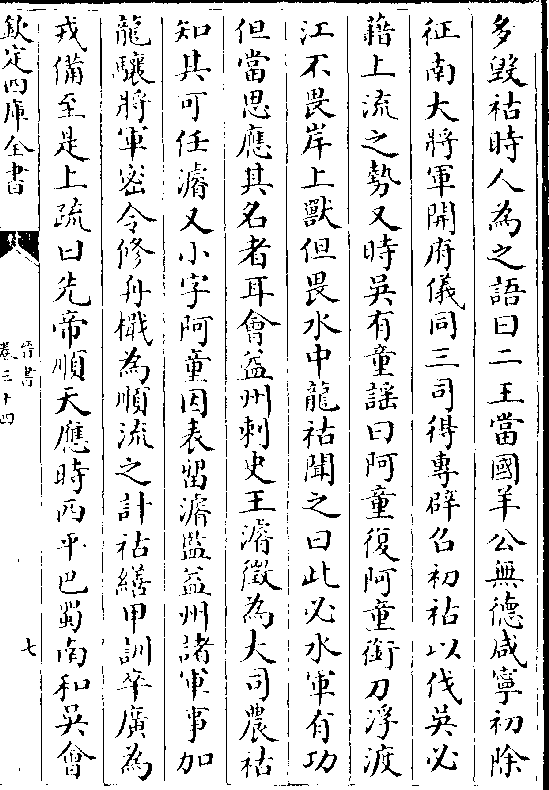 多毁祜時人為之語曰二王當國羊公無德咸寧初除
征南大將軍開府儀同三司得專辟召初祜以伐吳必
藉上流之勢又時吳有童謡曰阿童復阿童銜刀浮渡
江不畏岸上獸但畏水中龍祜聞之曰此必水軍有功
但當思應其名者耳會益州刺史王濬徵為大司農祜
知其可任濬又小字阿童因表留濬監益州諸軍事加
龍驤將軍密令修舟檝為順流之計祜繕甲訓卒廣為
戎備至是上疏曰先帝順天應時西平巴蜀南和吳會
欽定四庫全書
晉書
卷三十四
七